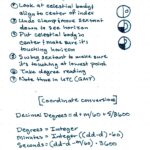 ① Look at celestial body,
align to center of index
② Undo clamp, move sextant
down to see horizon
③ Put celestial body in
center, make sure it's
touching horizon
④ Swing sextant to make sure
it's touching at lowest point
⑤ Take degree reading
⑥ Note time in UTC (GMT)
[Coordinate Conversion]
Decimal Degrees = d + m/60 + s/3600
Degrees = Integer
Minutes = Integer ((dd-d)·60)
Seconds = (dd-d-m/60)·3600